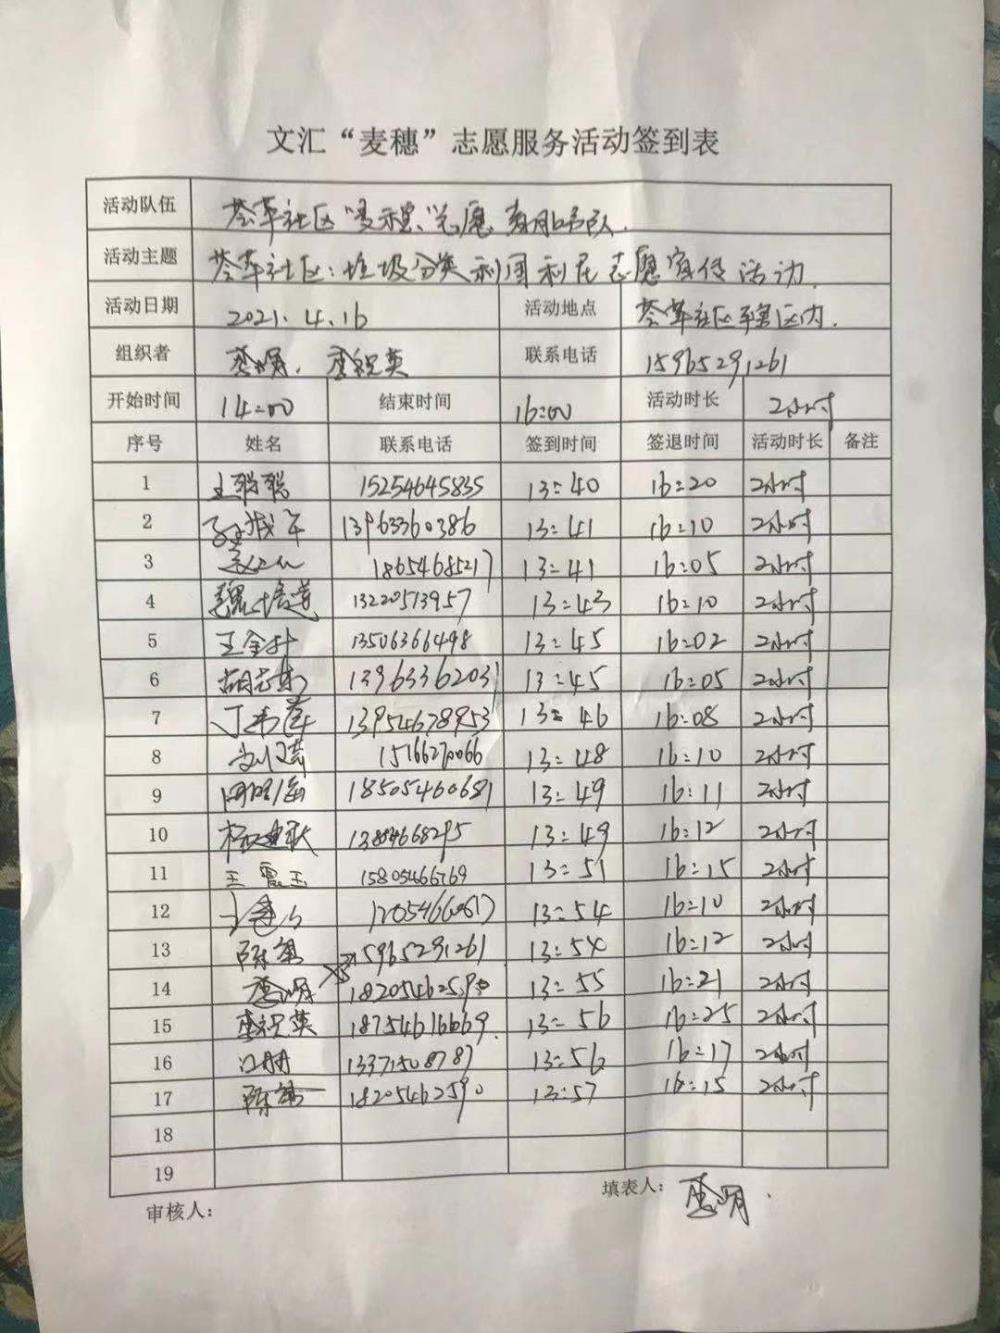 文汇“麦穗”志愿服务活动签到表
活动队伍 荟萃社区“麦穗”志愿服务队
活动主题 荟萃社区:垃圾分类利国利民志愿宣传活动.
活动日期 2021.4.16 活动地点 荟萃社区辖区内.
组织者 联系电话 15965291261
开始时间 14:00 结束时间 16:00 活动时长 2小时
序号 姓名 联系电话 签到时间 签退时间 活动时长 备注
1 王聪聪 15254645835 13:40 16:20 2小时
2 13963360386 13:41 16:10 2小时
3 18654685217 13:41 16:05 2小时
4 13220513957 13:43 16:10 2小时
5 王金叶 13506366498 13:45 16:02 2小时
6 13963362031 13:45 16:05 2小时
7 13954678953 13:46 16:08 2小时
8 15166270066 13:48 16:10 2小时
9 18505460681 13:49 16:11 2小时
10 13:49 16:12 2小时
11 王震玉 15805466769 13:51 16:15 2小时
12 13:54 16:10 2小时
13 陈娟 15965291261 13:54 16:12 2小时
14 18205462590 13:55 16:21 2小时
15 18754616669 13:56 16:25 2小时
16 江册 13371508787 13:56 16:17 2小时
17 18205462590 13:57 16:15 2小时
18
19
审核人: 填表人: